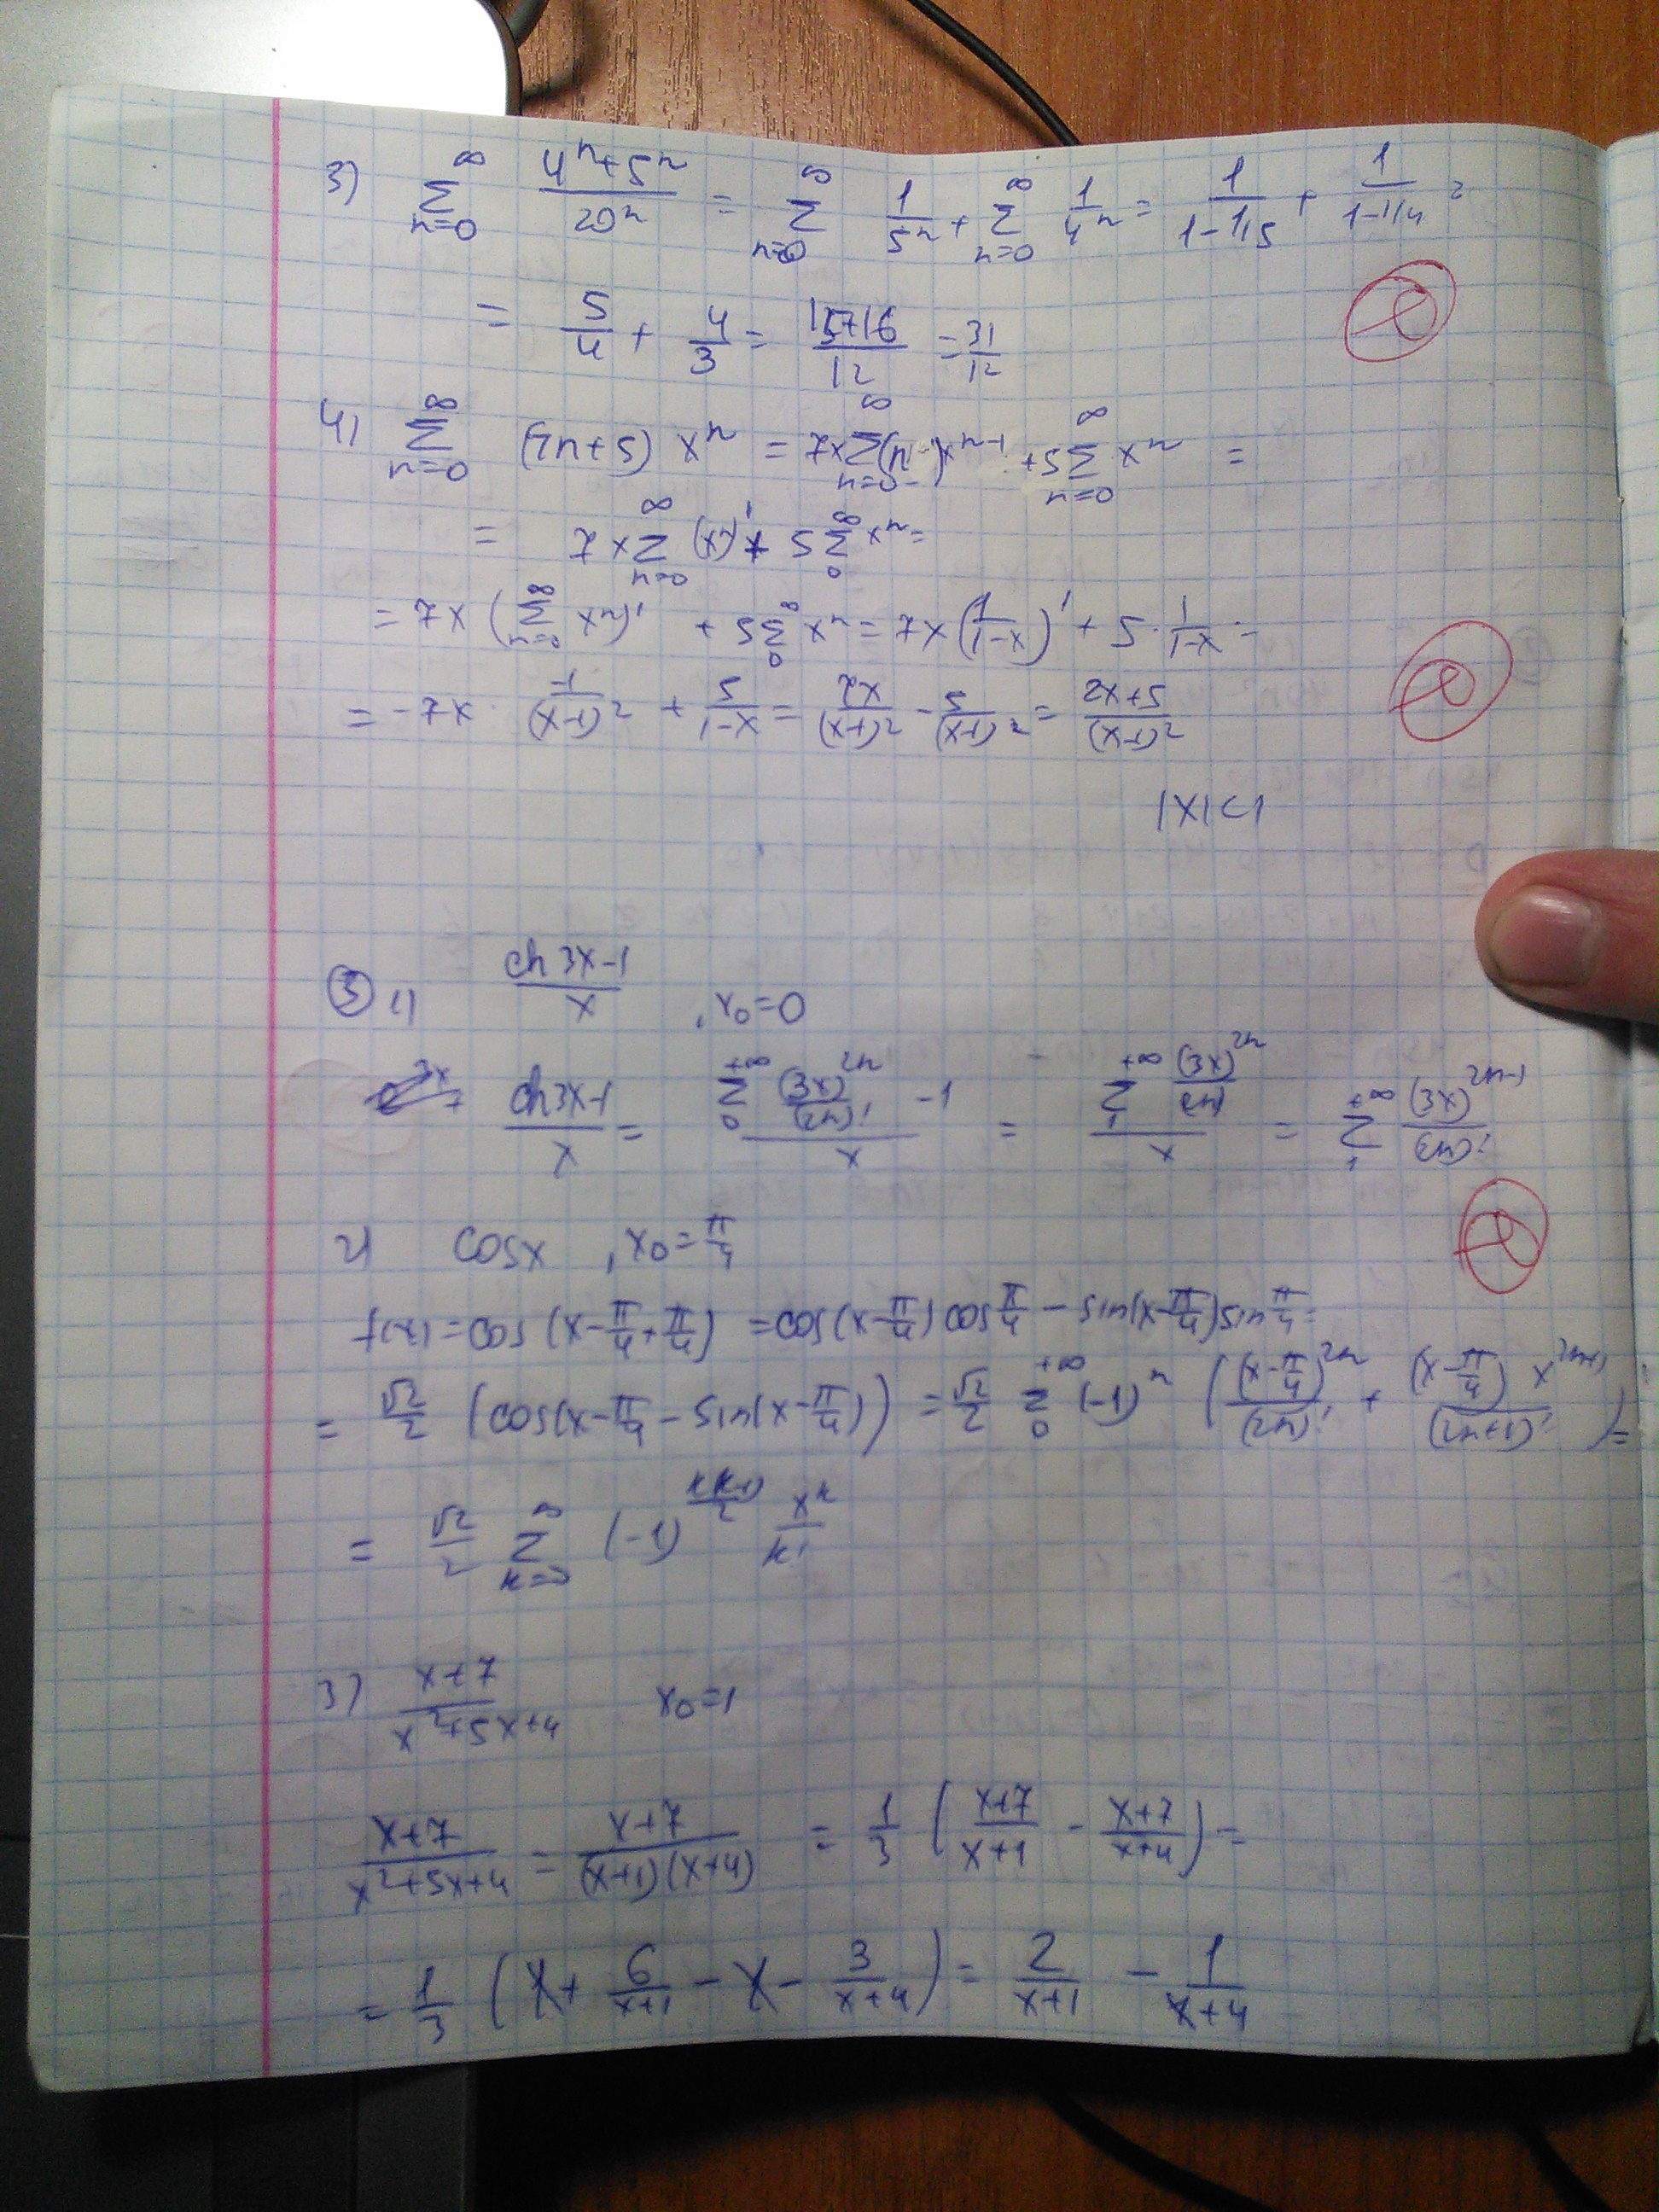 3) ∞ Σ n=0 (4ⁿ+5ⁿ)/20ⁿ = ∞ Σ n=0 1/5ⁿ + ∞ Σ n=0 1/4ⁿ = 1/(1-1/5) + 1/(1-1/4) =
= 5/4 + 4/3 = (15+16)/12 = 31/12
4) ∞ Σ n=0 (7n+5) xⁿ = 7x ∞ Σ n=0 (n)xⁿ⁻¹ + 5 ∞ Σ n=0 xⁿ =
= 7x ∞ Σ n=0 (xⁿ)' + 5 ∞ Σ 0 xⁿ =
= 7x (∞ Σ n=0 xⁿ)' + 5 ∞ Σ 0 xⁿ = 7x (1/(1-x))' + 5 · 1/(1-x) =
= -7x · -1/(x-1)² + 5/(1-x) = 7x/(x-1)² - 5/(x-1) = (2x+5)/(x-1)²
|x|<1
③ 1) (ch 3x-1)/x , x₀=0
(ch3x-1)/x = (+∞ Σ 0 (3x)²ⁿ/(2n)! -1)/x = (+∞ Σ 1 (3x)²ⁿ/(2n)!)/x = +∞ Σ 1 (3x)²ⁿ⁻¹/(2n)!
2) cosx , x₀=π/4
f(x)=cos(x-π/4+π/4) =cos(x-π/4)cosπ/4 - sin(x-π/4)sinπ/4=
= √2/2 (cos(x-π/4 - sin(x-π/4)) = √2/2 +∞ Σ 0 (-1)ⁿ ((x-π/4)²ⁿ/(2n)! + (x-π/4) x²ⁿ⁺¹/(2n+1)!) =
= √2/2 ∞ Σ k=0 (-1)^(k(k+1)/2) xᵏ/k!
3) (x+7)/(x²+5x+4) x₀=1
(x+7)/(x²+5x+4) = (x+7)/((x+1)(x+4)) = 1/3 ((x+7)/(x+1) - (x+7)/(x+4)) =
= 1/3 (x + 6/(x+1) - x - 3/(x+4)) = 2/(x+1) - 1/(x+4)